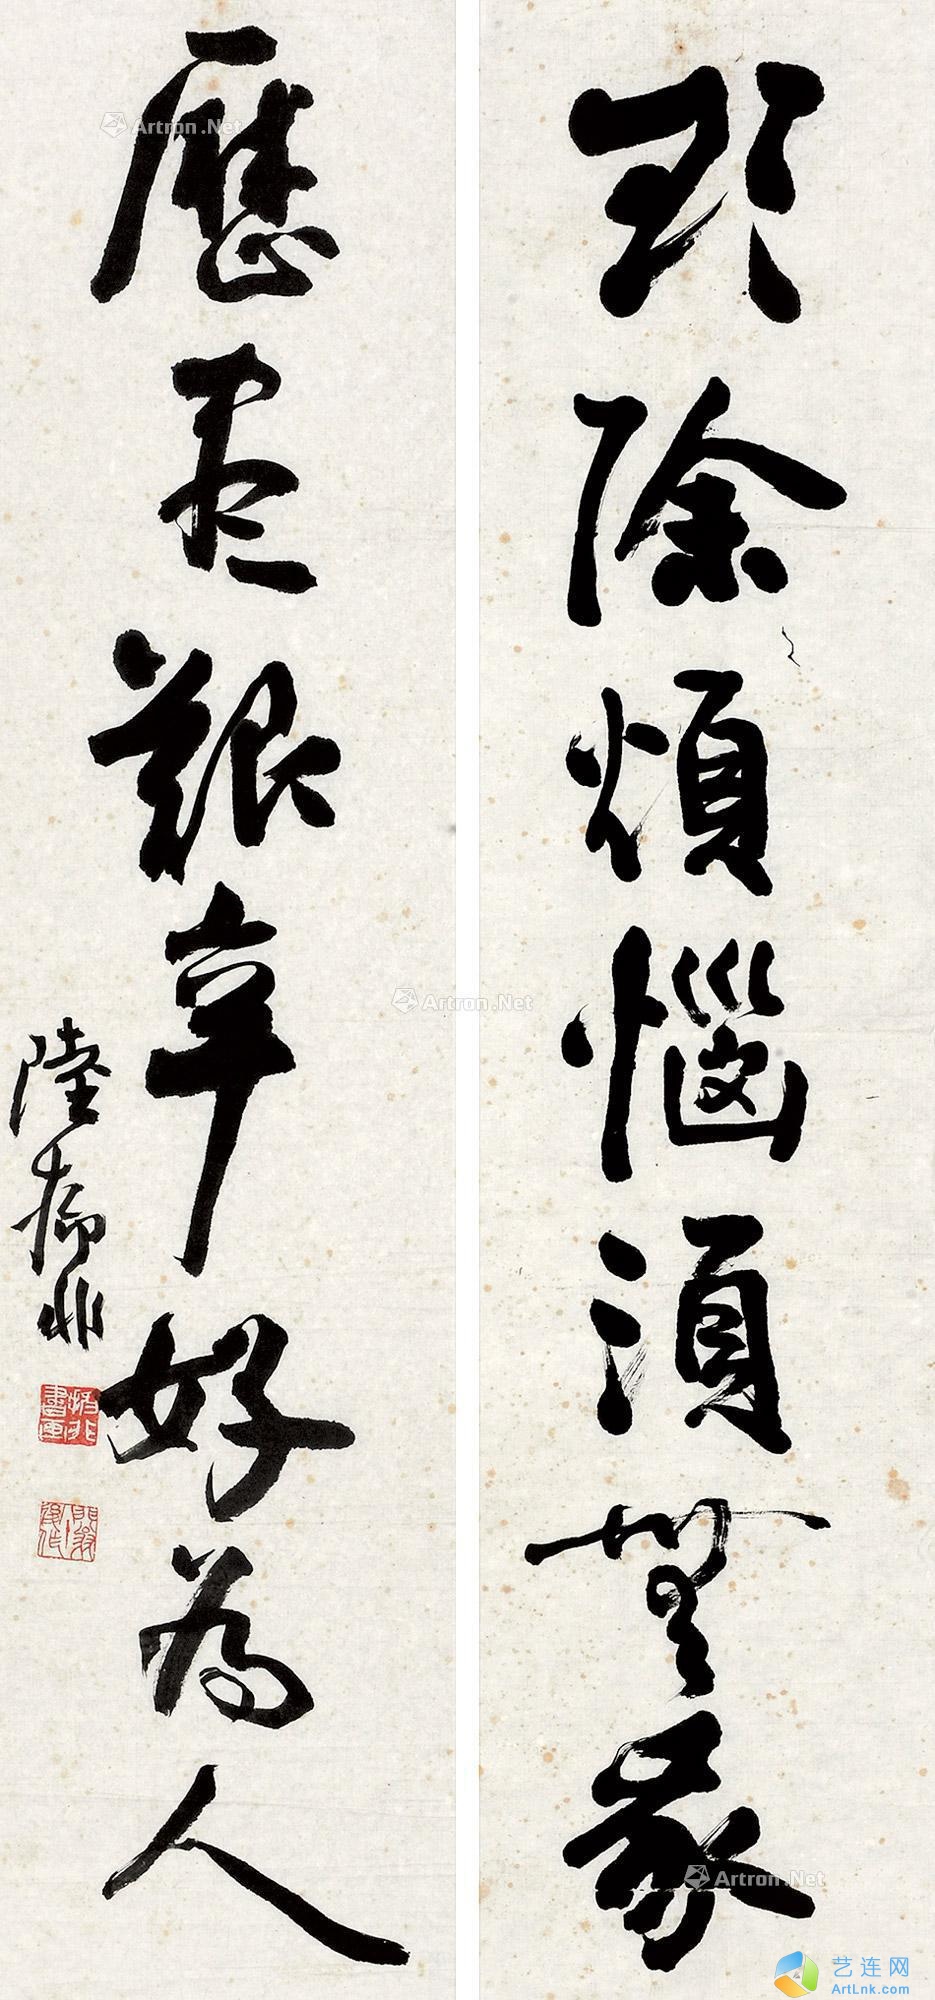 欲除煩惱須無我
歷盡艱辛好為人
陸抑非
抑非書畫
Artron.Net
Artron.Net
Artron.Net
艺连网
ArtLnk.com